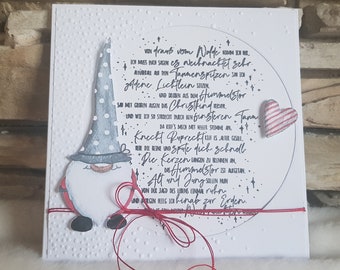 Von drauß vom Walde komm ich her,
ich muss euch sagen es weihnachtet sehr
Allüberall auf den Tannenspitzen sah ich
goldene Lichtlein sitzen
und droben aus dem Himmelstor
sah mit großen Augen das Christkind hervor,
und wie ich so strolcht durch den finsteren Tann
da rief's mich mit heller Stimme an.
Knecht Ruprecht rief es, alter Gesell,
hebe die Beine und spute dich schnell
Die Kerzen fangen zu brennen an,
das Himmelstor ist aufgetan
Alt und Jung sollen nun
von der Jagd des Lebens einmal ruhn
und morgen flieg ich hinab zur Erden